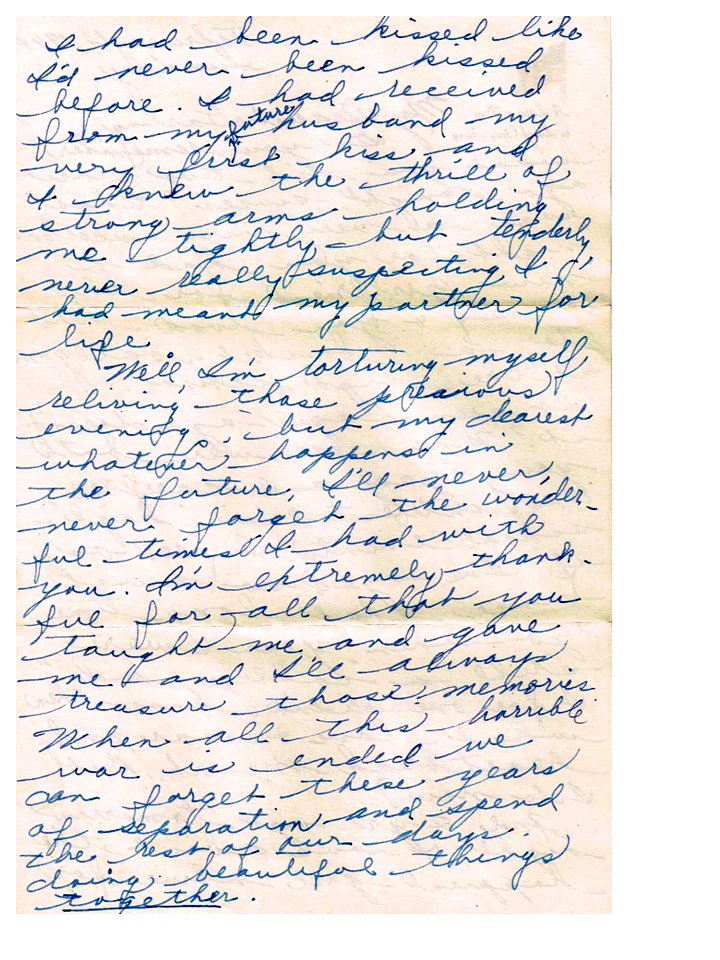 I had been kissed like
I'd never been kissed
before. I had received
from my future husband my
very first kiss and
I knew the thrill of
strong arms holding
me tightly but tenderly,
never really suspecting I'd
had meant my partner for
life.
Well, I'm torturing myself
reliving those precious
evenings, but my dearest
whatever happens in
the future, I'll never,
never forget the wonder-
ful times I had with
you. I'm extremely thank-
ful for all that you
taught me and gave
me and I'll always
treasure those memories
When all this horrible
war is ended we
can forget these years
of separation and spend
the rest of our days
doing beautiful things
together.